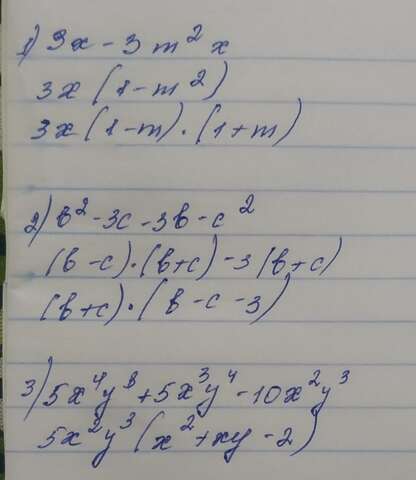 1) 3x - 3m²x
3x(1-m²)
3x(1-m)·(1+m)
2) b² - 3c - 3b - c²
(b-c)·(b+c) - 3(b+c)
(b+c)·(b-c-3)
3) 5x⁴y⁸ + 5x³y⁴ - 10x²y³
5x²y³(x²+xy-2)